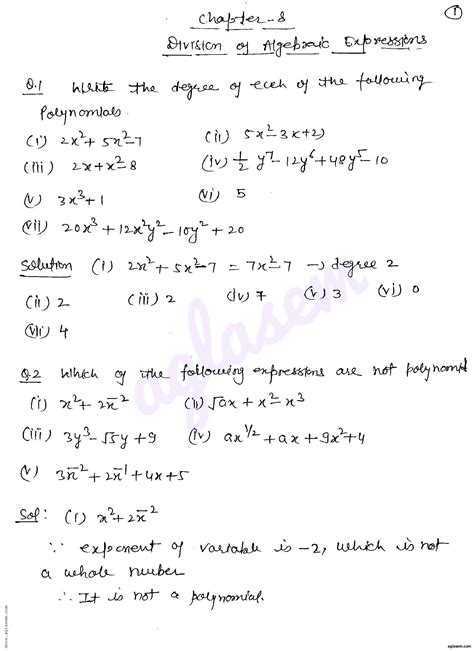 ①
Chapter-8
Division of Algebraic Expressions
Q.1 Write the degree of each of the following
Polynomials.
(i) 2x²+5x²-7 (ii) 5x²-3x+2)
(iii) 2x+x²-8 (iv) ½ y⁷-12y⁶+48y⁵-10
(v) 3x³+1 (vi) 5
(vii) 20x³+12x²y²-10y²+20
Solution (i) 2x²+5x²-7 = 7x²-7 → degree 2
(ii) 2 (iii) 2 (iv) 7 (v) 3 (vi) 0
(vii) 4
Q.2 Which of the following expressions are not polynomial
(i) x²+2x⁻² (ii) √ax+x²-x³
(iii) 3y³-√5y+9 (iv) ax^1/2+ax+9x²+4
(v) 3x⁻²+2x⁻¹+4x+5
Sol: (i) x²+2x⁻²
∵ exponent of variable is -2, which is not
a whole number
∴ It is not a polynomial.
aglasem
docs.aglasem.com
aglasem.com